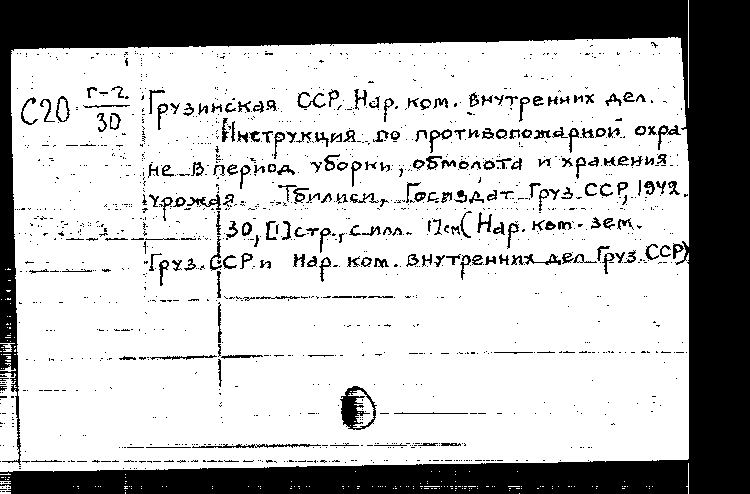 С20 г-2/30 Грузинская ССР, Нар. ком. внутренних дел.
Инструкция по противопожарной охра-
не в период уборки, обмолота и хранения
урожая. Тбилиси, Госиздат Груз. ССР, 1942.
30, [1] стр., с илл. 17см (Нар. ком. зем.
Груз. ССР и Нар. ком. внутренних дел Груз. ССР)